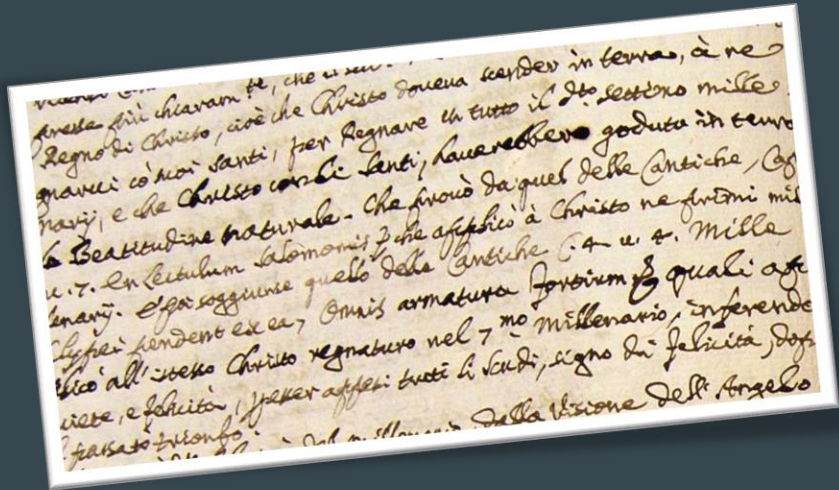 paresse più chiaram.te, che
Regno di Christo, cioè che Christo doueua scender in terra, à re
gnarui co' suoi santi, per Regnare in tutto il d.to settimo mille
nary, e che Christo con li santi, hauerebbero goduta in terra
la Beatitudine naturale. Che prouò da quel delle Cantiche, Cap
u. 7. En Lectulum Salomonis che applicò à Christo ne primi mil
lenarij. E poi soggiunse quello delle Cantiche C. 4. u. 4. Mille
Clypei pendent ex ea, Omnis armatura fortium quali
all' istesso Christo regnaturo nel 7.mo Millenario, inferendo
quiete, e felicità, appesi tutti li scudi, signo di felicità, dopo
il passato trionfo.
dalla Visione dell' Angelo